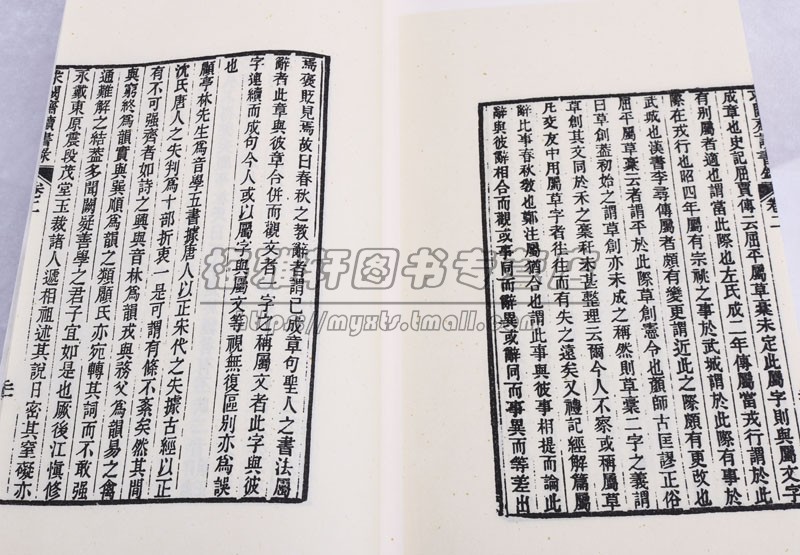 成章也史記屈賈傳云屈平屬草稾未定此屬字則與屬文字
有別屬者適也謂當此際也左氏成二年傳屬當戎行謂於此
際在戎行也昭四年屬有宗祧之事於武城謂此際有事於
武城也漢書李尋傳屬者頗有變更謂近此之際頗有更改也
屈平屬草稾云者謂平於此際草創憲令也顔師古匡謬正俗
曰草創蓋初始之謂草創亦未成之稱然則草稾二字之義謂
草創其文同於禾之稾秆未甚整理云爾今人不察或稱屬草
凡文友中用屬草字者往往而有失之遠矣又禮記經解篇屬
辭比事春秋敎也鄭注屬猶合也謂此事與彼事相提而論此
辭與彼辭相合而觀或事同而辭異或辭同而事異而等差出
卷二
焉褒貶見焉故曰春秋之敎辭者謂已成章句聖人之書法屬
辭者此章與彼章合併而觀文者一字之稱屬文者此字與彼
字連續而成句今人或以屬字與屬文等視無復區別亦爲誤
也
顧亭林先生爲音學五書據唐人以正宋代之失據古經以正
沈氏唐人之失判爲十部折衷一是可謂有條不紊矣然其間
有不可强齊者如詩之興與音林爲韻戎與務父爲韻易之禽
與窮終爲韻實與巽順爲韻之類顧氏亦宛轉其詞而不敢强
通難解之結蓋多聞闕疑善學之君子宜如是也厥後江愼修
永戴東原震段茂堂玉裁諸人遞相祖述其說日密其窒礙亦
讀書錄
卷二
書专营店
https://myxts.tmall.com